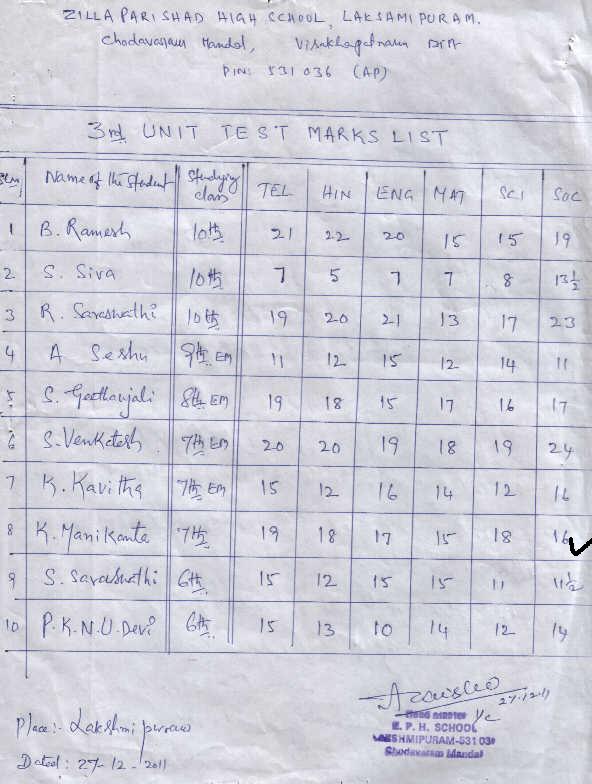 ZILLA PARISHAD HIGH SCHOOL, LAKSAMIPURAM.
Chodavaram Mandal, Visakhapatnam Dist
PIN: 531 036 (AP)
3rd UNIT TEST MARKS LIST
Name of the student Studying class TEL HIN ENG MAT SCI SOC
1 B. Ramesh 10th 21 22 20 15 15 19
2 S. Siva 10th 7 5 7 7 8 13½
3 R. Saraswathi 10th 19 20 21 13 17 23
4 A Seshu 9th EM 11 12 15 12 14 11
5 S. Geethanjali 8th EM 19 18 15 17 16 17
6 S. Venkatesh 7th EM 20 20 19 18 19 24
7 K. Kavitha 7th EM 15 12 16 14 12 16
8 K. Manikanta 7th 19 18 17 15 18 16
9 S. Saraswathi 6th 15 12 15 15 11 11½
10 P.K.N.U. Devi 6th 15 13 10 14 12 14
27-12-11
Head Master I/c
Z. P. H. SCHOOL
LAKSHMIPURAM-531 036
Chodavaram Mandal
Place:- Lakshmipuram
Dated: 27-12-2011